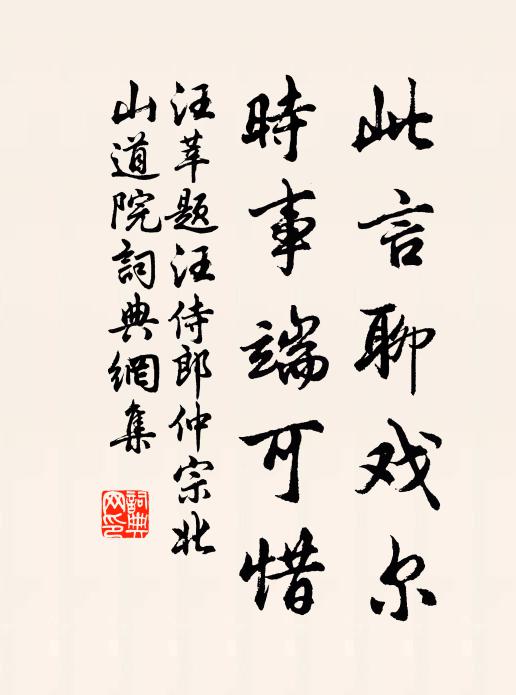 此言聊戏尔
時事端可惜
汪莘题汪侍郎仲宗北
山道院詞典網集
詞典
网印